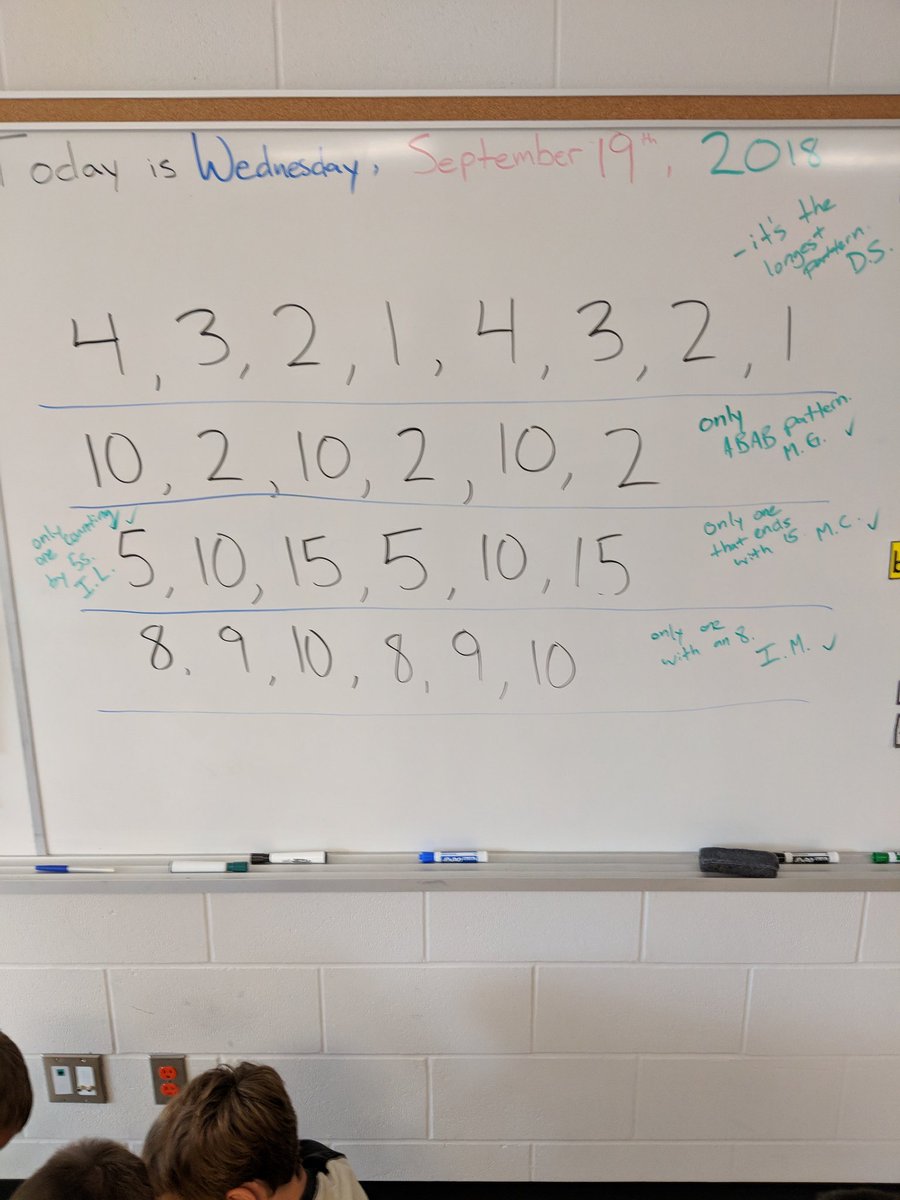 Today is Wednesday, September 19th, 2018
- it's the
longest
pattern.
D.S.
4, 3, 2, 1, 4, 3, 2, 1
10, 2, 10, 2, 10, 2
only
ABAB pattern.
M.G. ✓
only counting ✓
one
by 5s.
I.L.
5, 10, 15, 5, 10, 15
only one
that ends
with 15. M.C. ✓
8, 9, 10, 8, 9, 10
only one
with an 8.
I.M. ✓